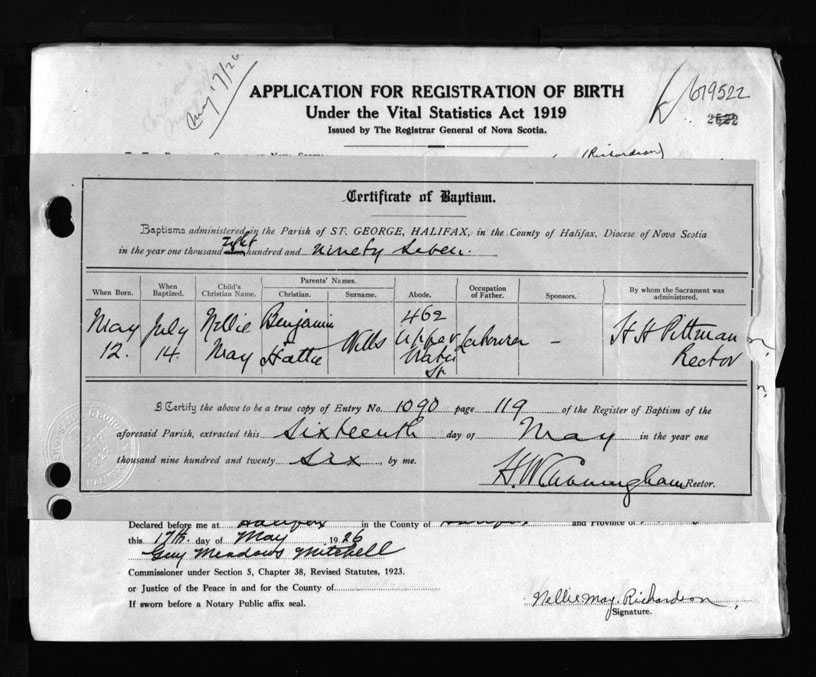 May 17/26
APPLICATION FOR REGISTRATION OF BIRTH
Under the Vital Statistics Act 1919
Issued by The Registrar General of Nova Scotia.
679522
2522
(Richardson)
Certificate of Baptism.
Baptisms administered in the Parish of ST. GEORGE, HALIFAX, in the County of Halifax, Diocese of Nova Scotia
in the year one thousand Eight hundred and ninety seven.
When Born. When Baptized. Child's Christian Name. Parents' Names. Christian. Surname. Abode. Occupation of Father. Sponsors. By whom the Sacrament was administered.
May 12. July 14. Nellie May Benjamin Hattie Wills 462 Upper Water St. Labourer – H H Pittman Rector
I Certify the above to be a true copy of Entry No. 1090 page 119 of the Register of Baptism of the
aforesaid Parish, extracted this Sixteenth day of May in the year one
thousand nine hundred and twenty six by me.
H. W. Cunningham Rector.
Declared before me at Halifax in the County of Halifax and Province of
this 17th. day of May 1926
Guy Meadows Mitchell
Commissioner under Section 5, Chapter 38, Revised Statutes, 1923.
or Justice of the Peace in and for the County of
If sworn before a Notary Public affix seal.
Nellie May Richardson,
Signature.